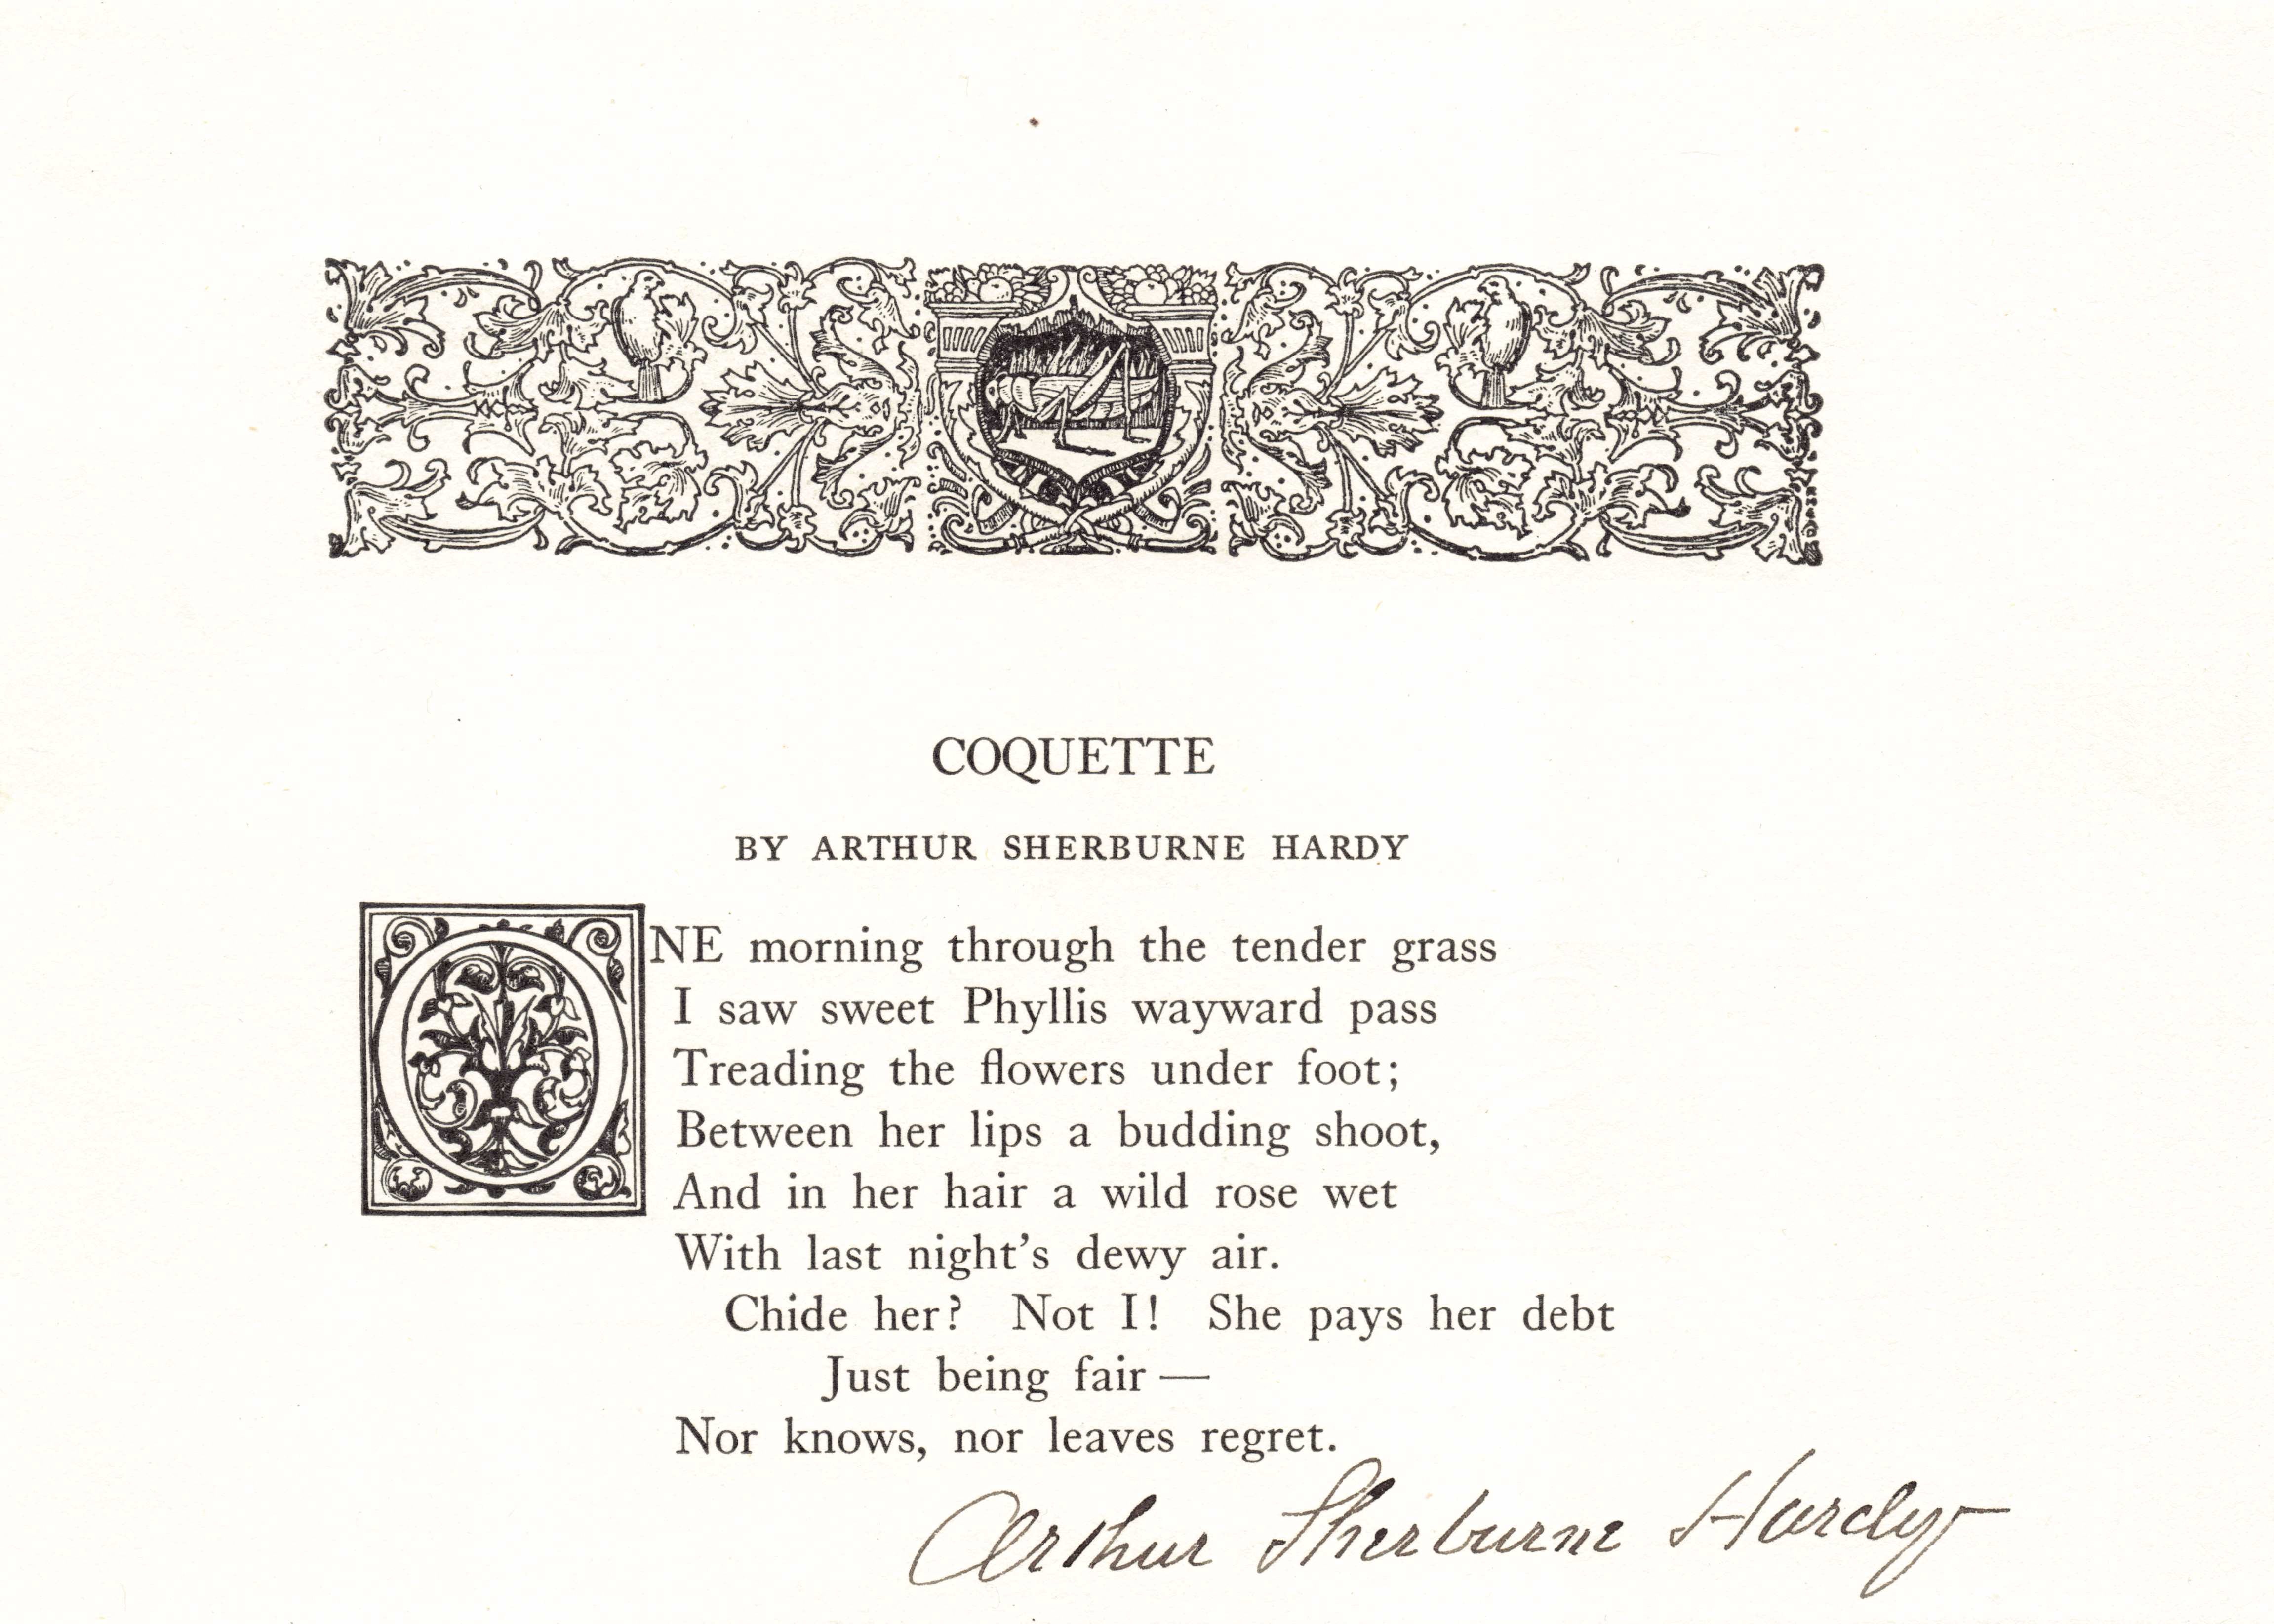 COQUETTE
BY ARTHUR SHERBURNE HARDY
ONE morning through the tender grass
I saw sweet Phyllis wayward pass
Treading the flowers under foot;
Between her lips a budding shoot,
And in her hair a wild rose wet
With last night’s dewy air.
Chide her? Not I! She pays her debt
Just being fair —
Nor knows, nor leaves regret.
Arthur Sherburne Hardy